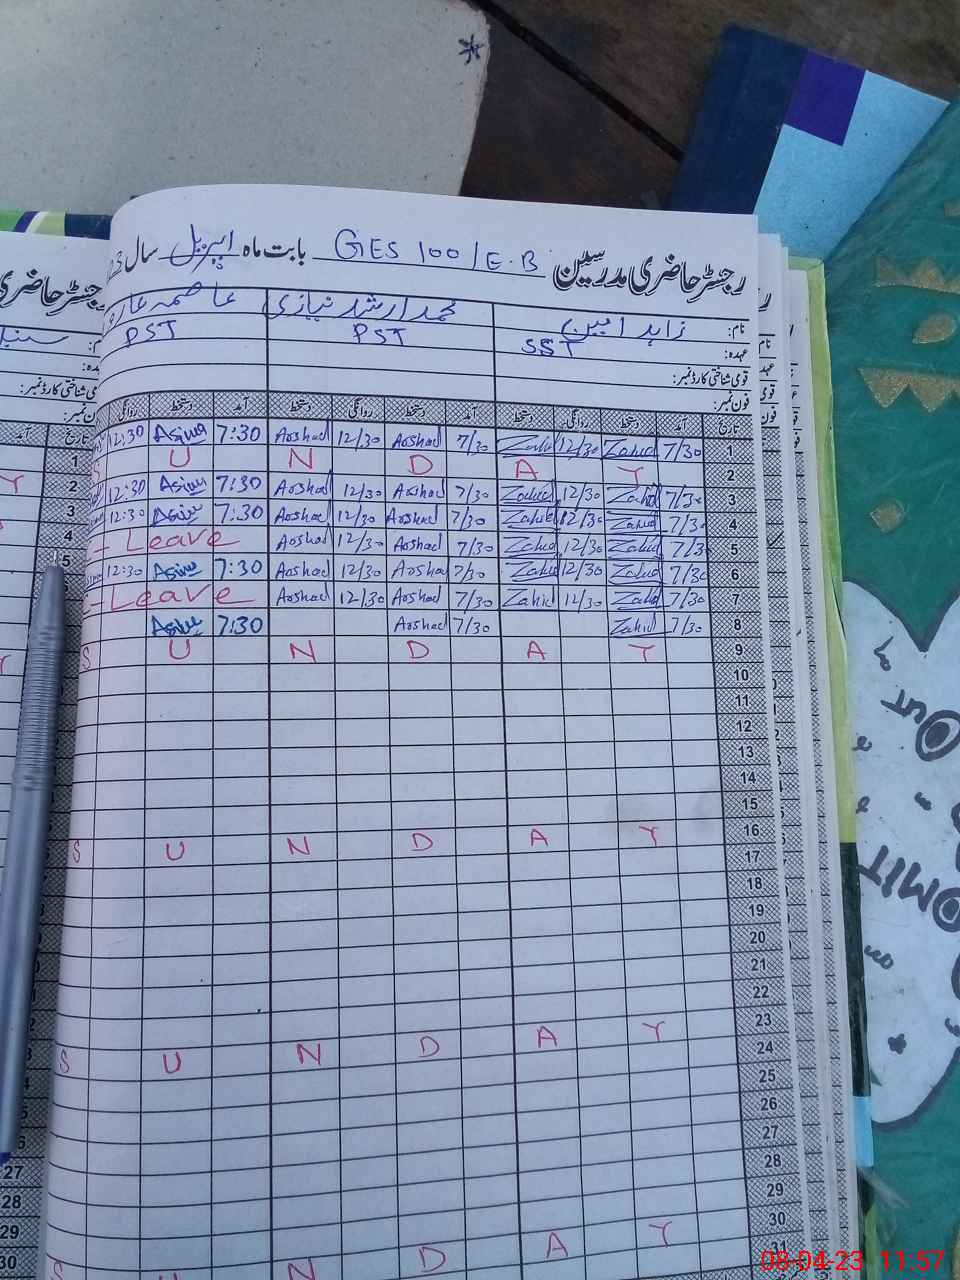 رجسٹر حاضری مدرسین GES 100/E.B بابت ماہ اپریل سال
نام: زاہد امین محمد ارشد نیازی عاصمہ
عہدہ: SST PST PST
قومی شناختی کارڈ نمبر:
فون نمبر:
تاریخ آمد دستخط روانگی دستخط آمد دستخط روانگی دستخط آمد دستخط روانگی
12:30 Asima 7:30 Arshad 12/30 Arshad 7/30 Zahid 12/30 Zahid 7/30 1
S U N D A Y 2
12:30 Asima 7:30 Arshad 12/30 Arshad 7/30 Zahid 12/30 Zahid 7/30 3
12:30 Asima 7:30 Arshad 12/30 Arshad 7/30 Zahid 12/30 Zahid 7/30 4
- Leave Arshad 12/30 Arshad 7/30 Zahid 12/30 Zahid 7/30 5
12:30 Asima 7:30 Arshad 12/30 Arshad 7/30 Zahid 12/30 Zahid 7/30 6
- Leave Arshad 12/30 Arshad 7/30 Zahid 12/30 Zahid 7/30 7
Asima 7:30 Arshad 7/30 Zahid 7/30 8
S U N D A Y 9
10
11
12
13
14
15
S U N D A Y 16
17
18
19
20
21
22
S U N D A Y 23
24
25
26
27
28
29
S U N D A Y 30
31
رجسٹر حاضری
آمد تاریخ
1
2
3
4
5
27
28
29
30
Out
OMIT
08-04-23 11:57